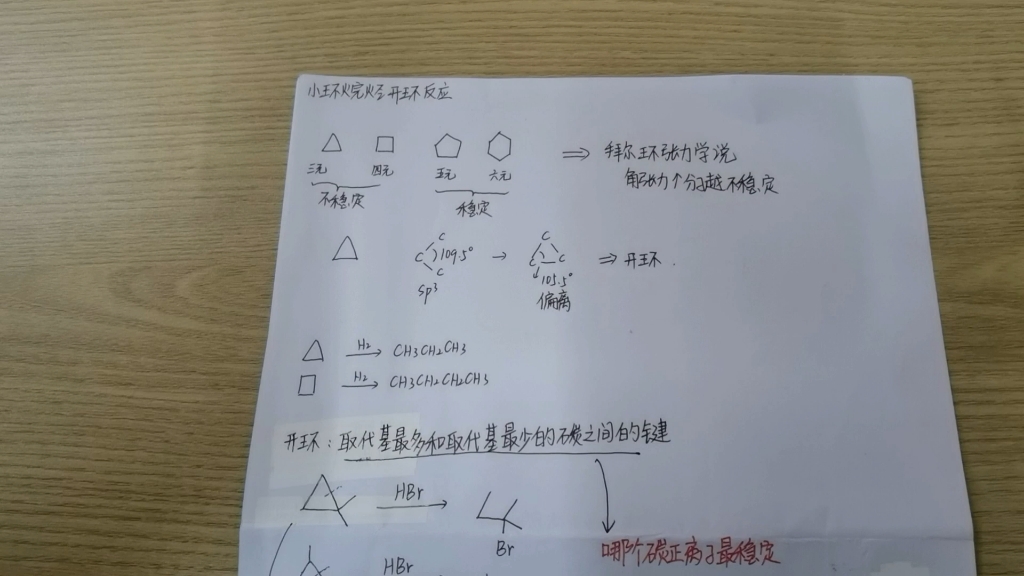 小环烷烃开环反应
三元 四元 五元 六元
不稳定 稳定
⇒ 拜尔环张力学说
角张力个分子越不稳定
C C C 109.5° → C C C 105.5° ⇒ 开环.
sp³ 偏离
H₂ → CH3CH2CH3
H₂ → CH3CH2CH2CH3
开环：取代基最多和取代基最少的碳之间的键
HBr →
Br
哪个碳正离子最稳定
HBr